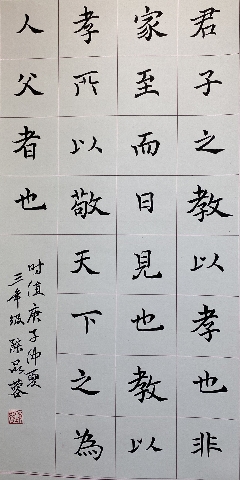 君子之教以孝也非
家至而日見也教以
孝所以敬天下之為
人父者也
时值庚子仲夏
三年级 陈品蓉